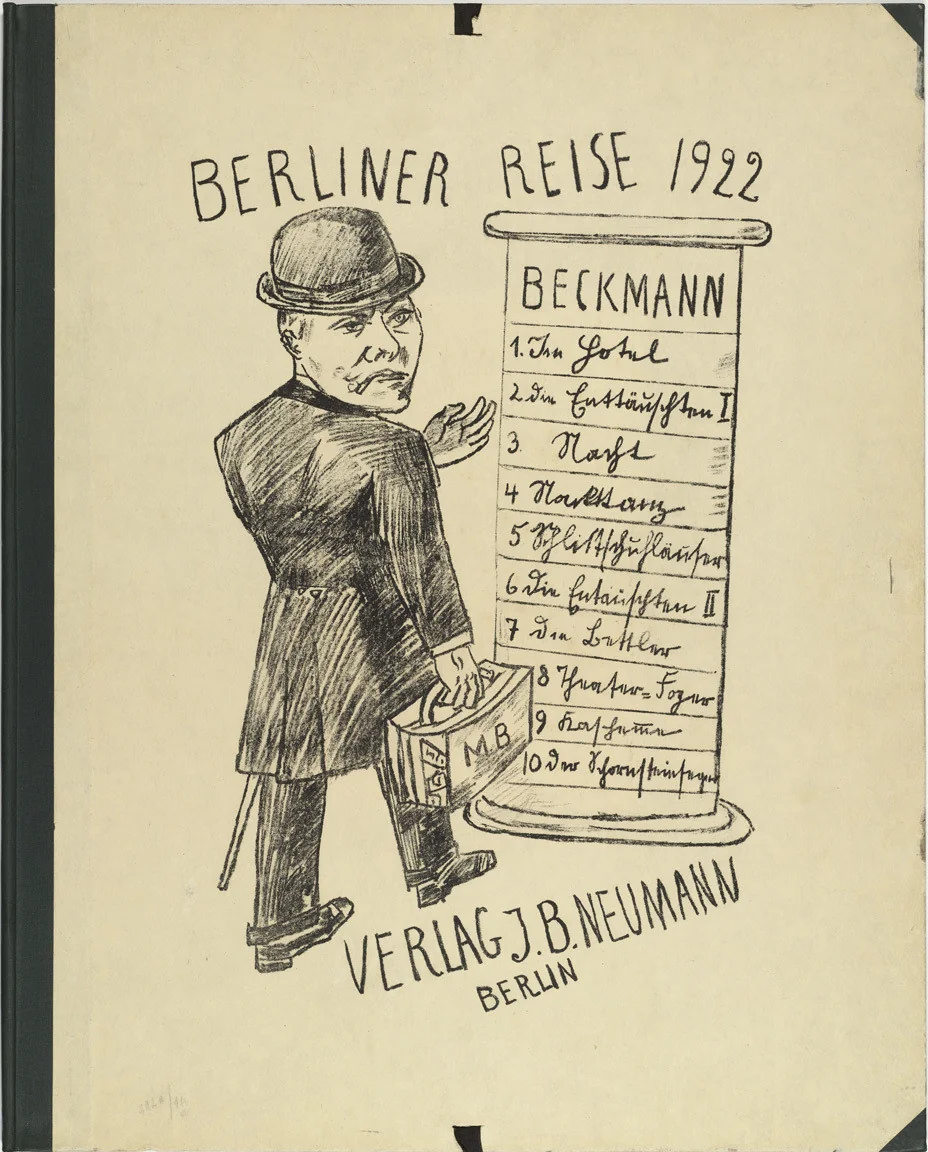 BERLINER REISE 1922
BECKMANN
1. Im Hotel
2 die Enttäuschten I
3. Nacht
4 Nackttanz
5 Schlittschuhläufer
6 die Entäuschten II
7 die Bettler
8 Theater=Foyer
9 Kaschemme
10 der Schornsteinfeger
M.B
VERLAG J.B. NEUMANN
BERLIN